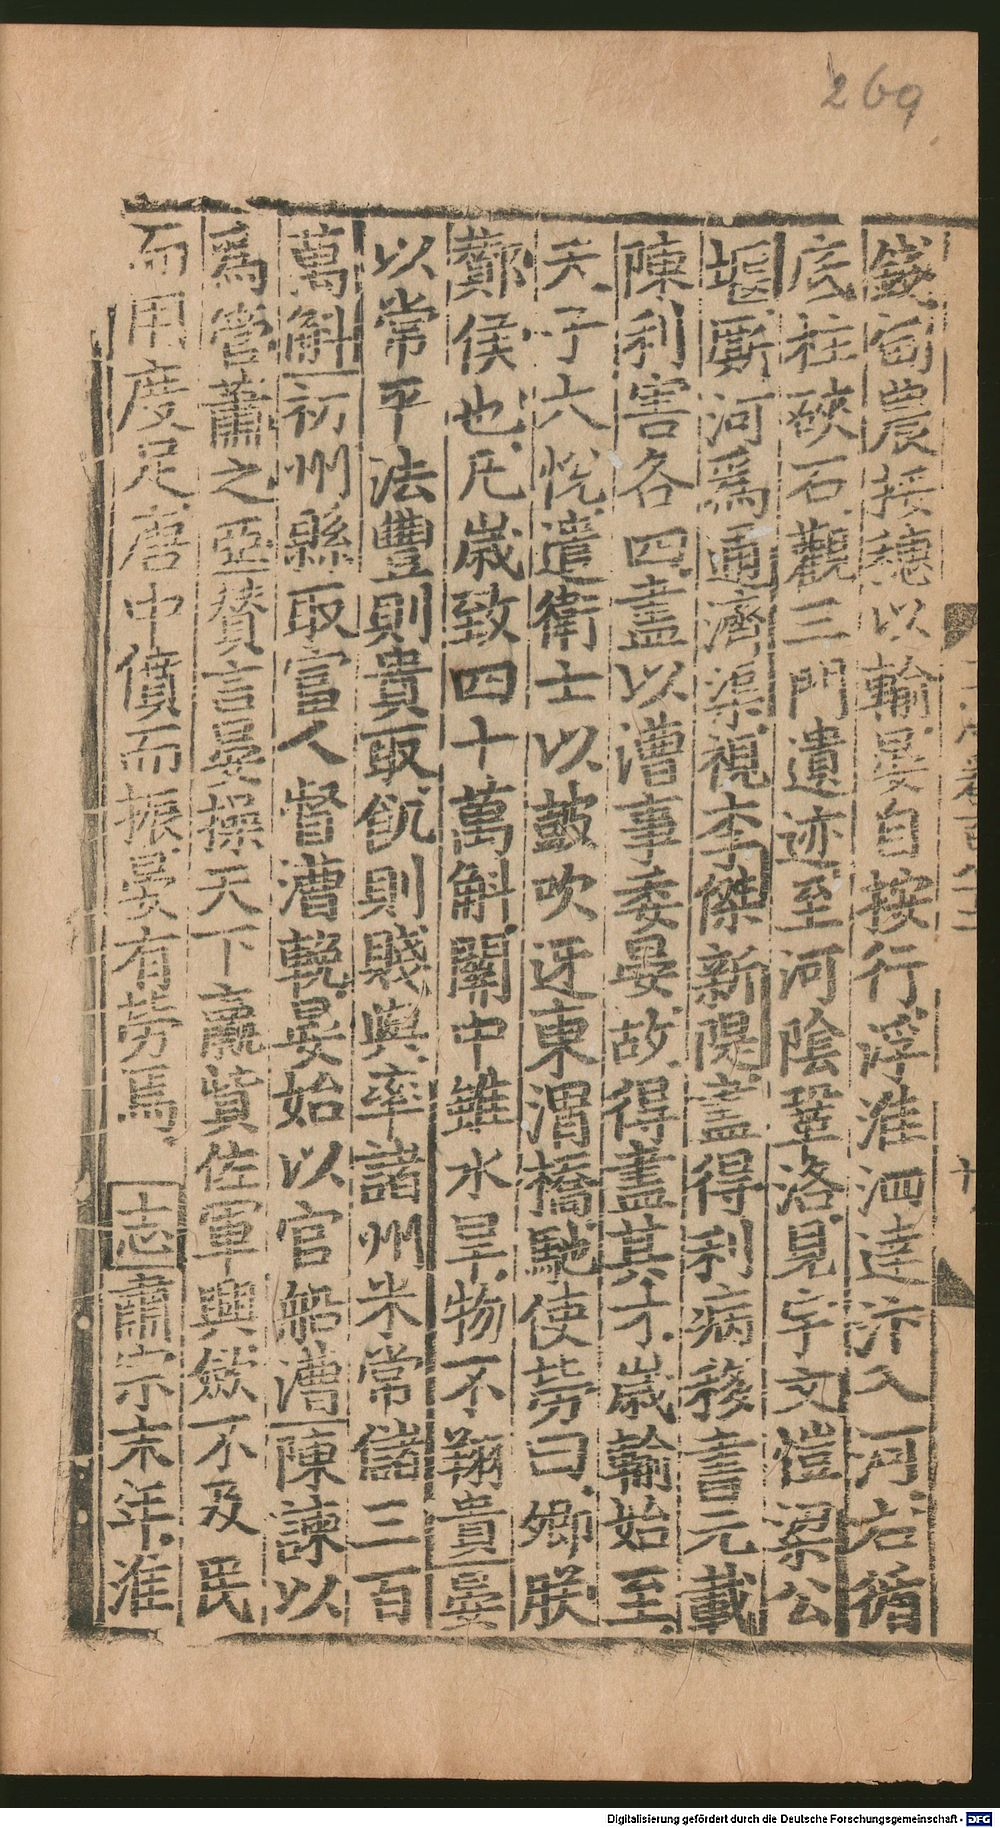 269
畿甸農挼穗以輸晏自按行浮淮泗達汴入河右循
底柱硤石觀三門遺迹至河陰鞏洛見宇文愷梁公
堰厮河爲通濟渠視李傑新隄盡得利病移書元載
陳利害各四盡以漕事委晏故得盡其才歲輸始至
天子大悅遣衛士以鼓吹迓東渭橋馳使勞曰卿朕
酇侯也凡歲致四十萬斛關中雖水旱物不翔貴晏
以常平法豐則貴取飢則賤與率諸州米常儲三百
萬斛初州縣取富人督漕輓晏始以官船漕陳諫以
爲管蕭之亞贊言晏操天下贏貲佐軍興斂不及民
而用度足唐中僨而振晏有勞焉 志肅宗末年淮
十
Digitalisierung gefördert durch die Deutsche Forschungsgemeinschaft - DFG